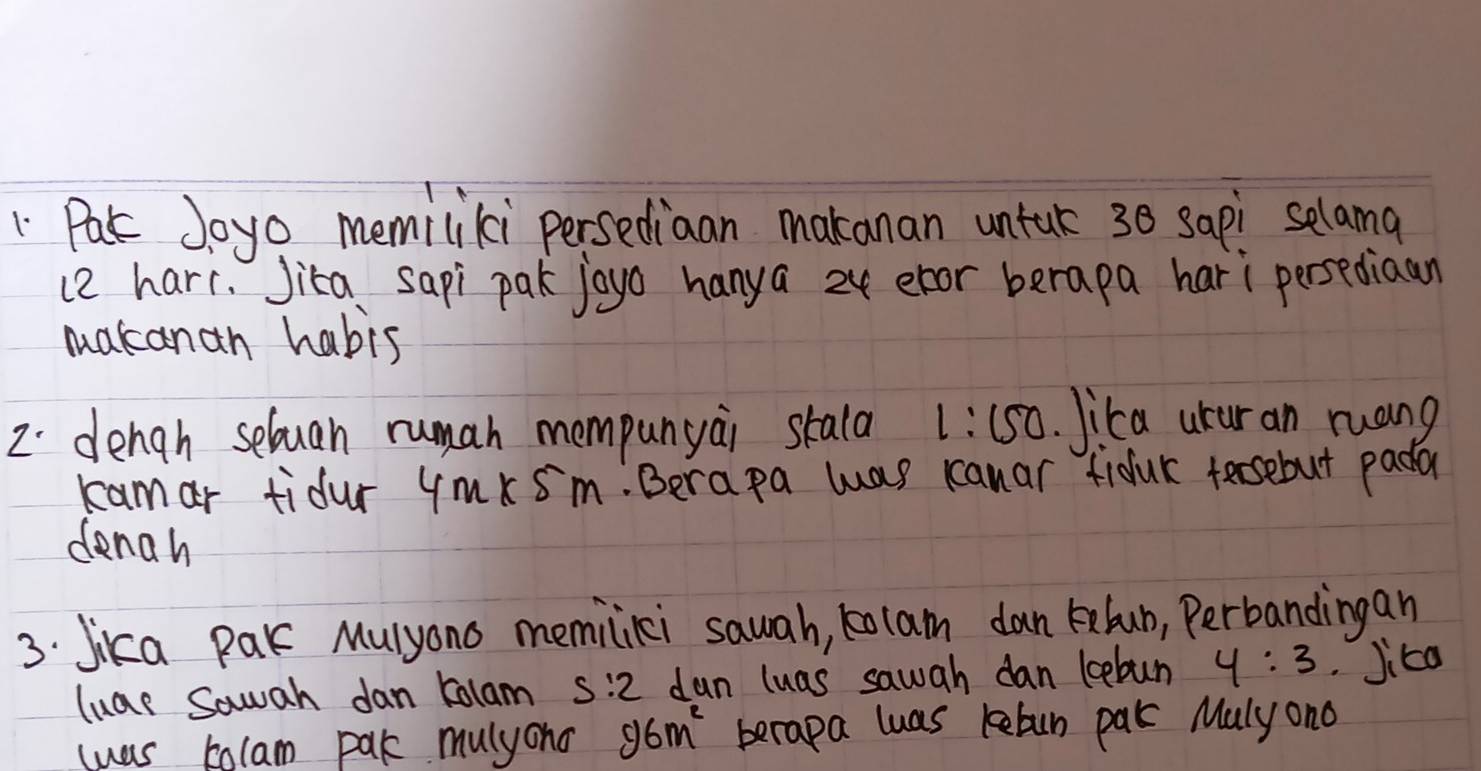 1. Pak Joyo memiliki persediaan makanan untuk 30 sapi selama
12 hari. Jika sapi pak joyo hanya 24 ekor berapa hari persediaan
makanan habis
2. denah sebuah rumah mempunyai skala 1:150. Jika ukuran ruang
kamar tidur 4m x 5m. Berapa luas kamar tidur tersebut pada
denah
3. Jika Pak Mulyono memiliki sawah, kolam dan kebun, Perbandingan
luas sawah dan kolam 5:2 dan luas sawah dan kebun 4:3. Jika
luas kolam pak mulyono 96m² berapa luas kebun pak Mulyono